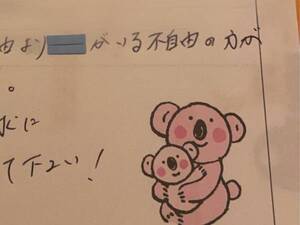 由より がいる不自由の方が
。
に
て下さい!